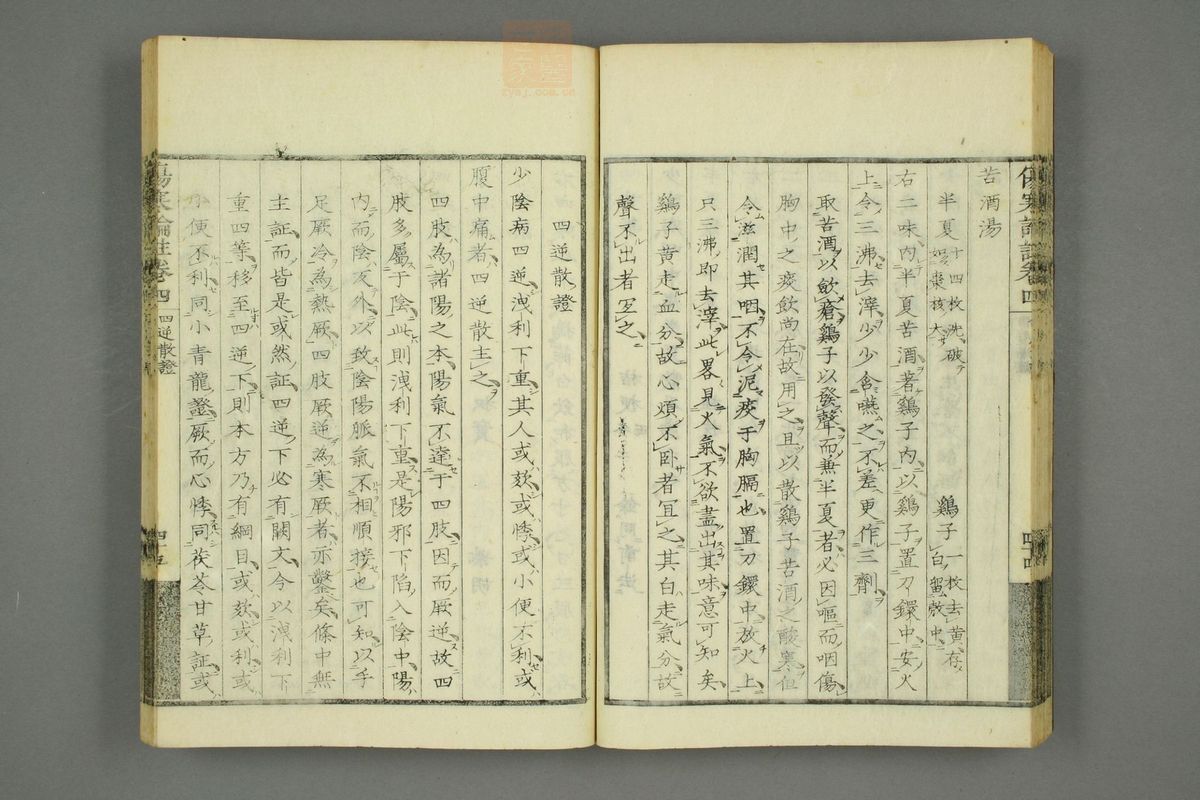 苦酒湯
半夏十四枚洗破如棗核大　鷄子一枚去黄存白畱殼中
右二味内半夏苦酒著鷄子内以鷄子置刀鐶中安火
上令三沸去滓少少含嚥之不差更作三劑
取苦酒以斂瘡鷄子以發聲而兼半夏者必因嘔而咽傷
胸中之痰飲尚在故用之且以散鷄子苦酒之酸寒但
令滋潤其咽不令泥痰于胸膈也置刀鐶中放火上
只三沸即去滓此畧見火氣不欲盡出其味意可知矣
鷄子黄走血分故心煩不卧者宜之其白走氣分故
聲不出者宜之
傷寒論註卷四
四十四
四逆散證
少陰病四逆洩利下重其人或欬或悸或小便不利或
腹中痛者四逆散主之
四肢為諸陽之本陽氣不達于四肢因而厥逆故四
肢多屬于陰此則洩利下重是陽邪下陷入陰中陽
内而陰反外以致陰陽脈氣不相順接也可知以手
足厥冷為熱厥四肢厥逆為寒厥者亦鑿矣條中無
主証而皆是或然証四逆下必有闕文今以洩利下
重四等移至四逆下則本方乃有綱目或欬或利或
小便不利同小青龍證厥而心悸同茯苓甘草証或
傷寒論註卷四　四逆散證
四十五
zysj.com.cn